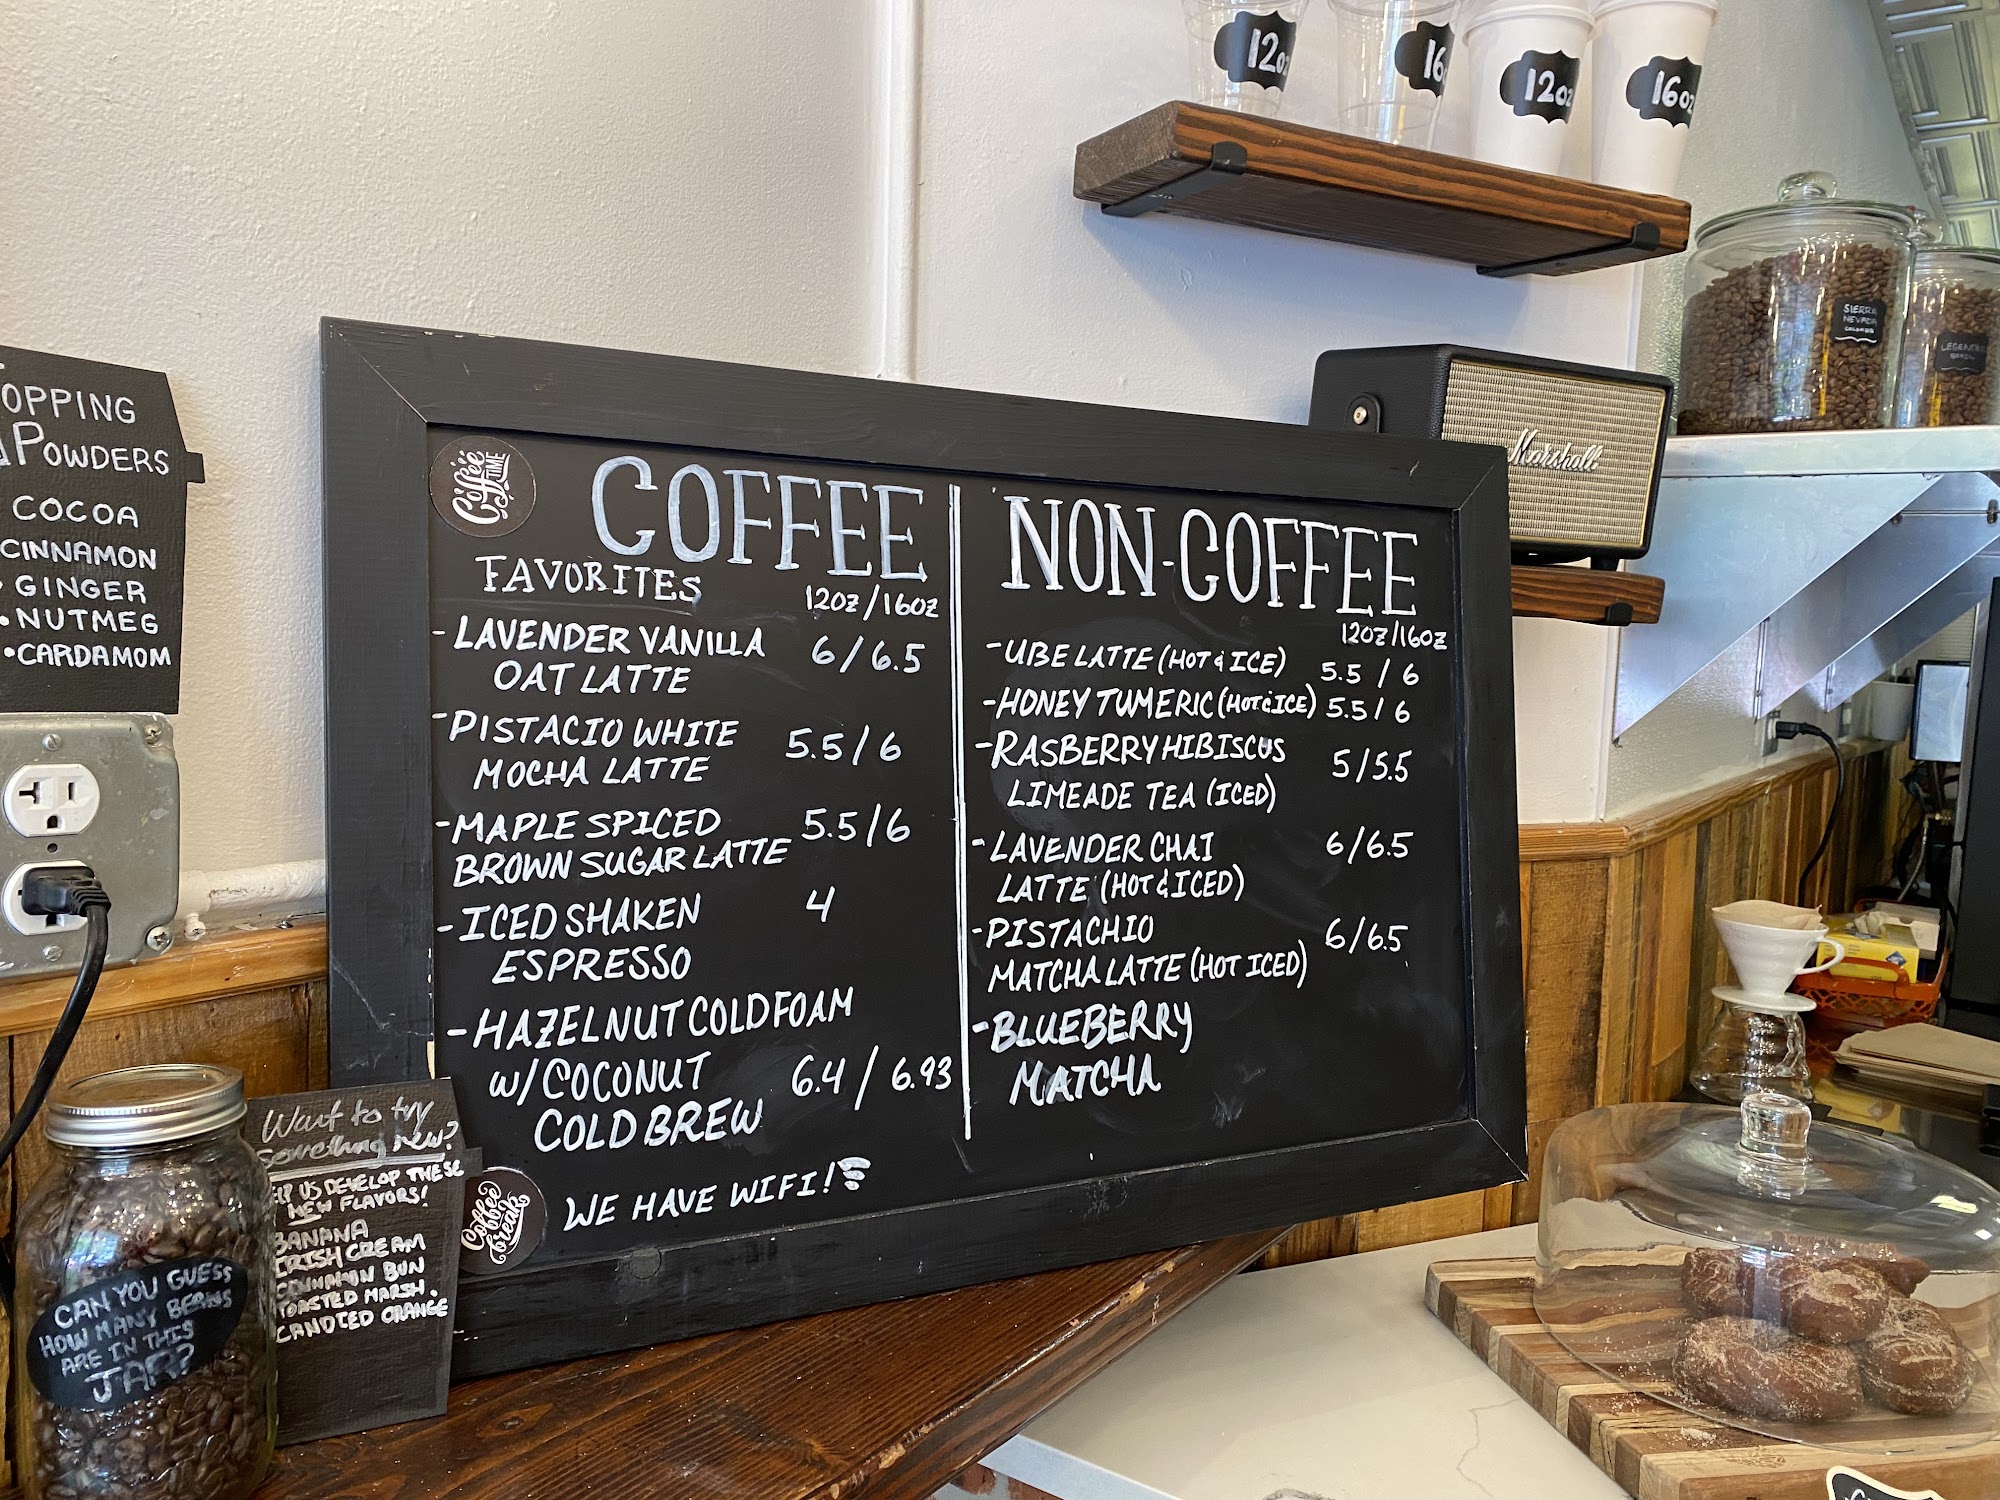 12oz
16
12oz
16oz
SIERRA
NEVADA
COLOMBIA
Marshall
TOPPING
POWDERS
COCOA
CINNAMON
GINGER
•NUTMEG
•CARDAMOM
Coffee
TIME
COFFEE
FAVORITES
12OZ/16OZ
-LAVENDER VANILLA 6/6.5
OAT LATTE
-PISTACIO WHITE 5.5/6
MOCHA LATTE
-MAPLE SPICED 5.5/6
BROWN SUGAR LATTE
-ICED SHAKEN 4
ESPRESSO
-HAZELNUT COLD FOAM
W/COCONUT 6.4/6.93
COLD BREW
WE HAVE WIFI!
Coffee
break
NON-COFFEE
12OZ/16OZ
-UBE LATTE (HOT & ICE) 5.5/6
-HONEY TUMERIC (HOT & ICE) 5.5/6
-RASBERRY HIBISCUS 5/5.5
LIMEADE TEA (ICED)
-LAVENDER CHAI 6/6.5
LATTE (HOT & ICED)
-PISTACHIO 6/6.5
MATCHA LATTE (HOT ICED)
-BLUEBERRY
MATCHA
Want to try
something new?
US DEVELOP THESE
NEW FLAVORS!
BANANA
IRISH CREAM
CINNAMON BUN
TOASTED MARSH.
CANDIED ORANGE
CAN YOU GUESS
HOW MANY BEANS
ARE IN THIS
JAR?